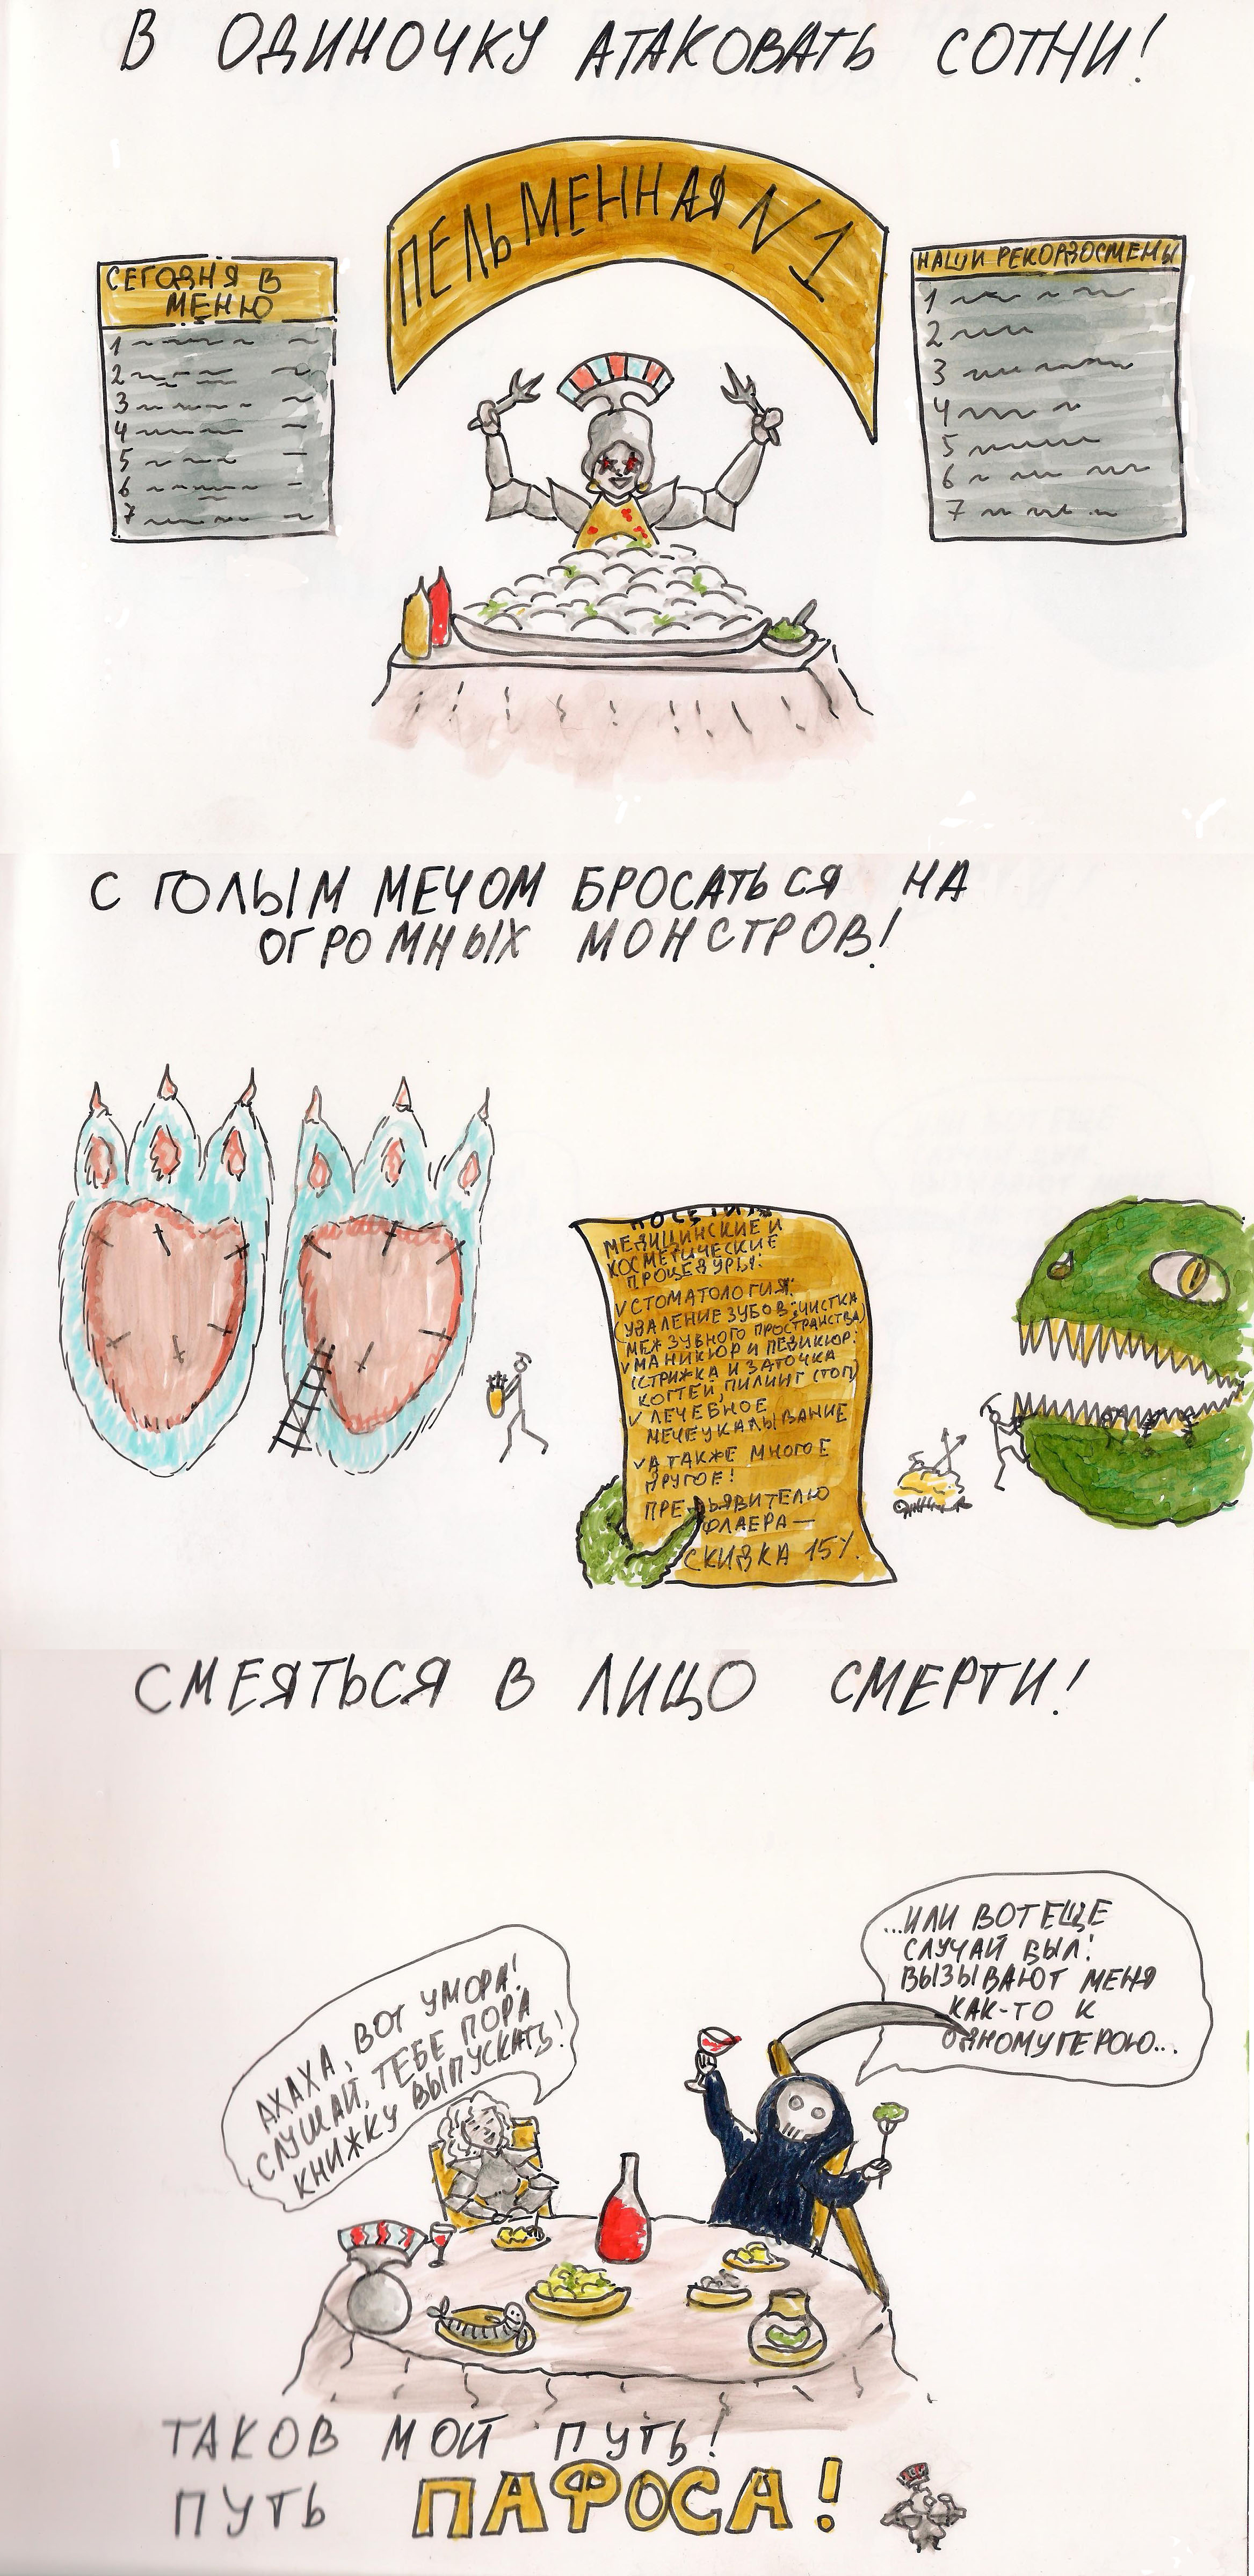 В ОДИНОЧКУ АТАКОВАТЬ СОТНИ!
ПЕЛЬМЕННАЯ N 1
СЕГОДНЯ В
МЕНЮ
1
2
3
4
5
6
7
НАШИ РЕКОРДОСМЕНЫ
1
2
3
4
5
6
7
С ГОЛЫМ МЕЧОМ БРОСАТЬСЯ НА
ОГРОМНЫХ МОНСТРОВ!
МЕДИЦИНСКИЕ И
КОСМЕТИЧЕСКИЕ
ПРОЦЕДУРЫ:
V СТОМАТОЛОГИЯ:
(УДАЛЕНИЕ ЗУБОВ, ЧИСТКА
МЕЖЗУБНОГО ПРОСТРАНСТВА)
V МАНИКЮР И ПЕДИКЮР:
(СТРИЖКА И ЗАТОЧКА
КОГТЕЙ, ПИЛИНГ СТОП)
V ЛЕЧЕБНОЕ
МЕЧЕУКАЛЫВАНИЕ
V А ТАКЖЕ МНОГОЕ
ДРУГОЕ!
ПРЕДЪЯВИТЕЛЮ
ФЛАЕРА —
СКИДКА 15%.
СМЕЯТЬСЯ В ЛИЦО СМЕРТИ!
...ИЛИ ВОТ ЕЩЕ
СЛУЧАЙ БЫЛ!
ВЫЗЫВАЮТ МЕНЯ
КАК-ТО К
ОДНОМУ ГЕРОЮ...
АХАХА, ВОТ УМОРА!
СЛУШАЙ, ТЕБЕ ПОРА
КНИЖКУ ВЫПУСКАТЬ!
ТАКОВ МОЙ ПУТЬ!
ПУТЬ ПАФОСА!